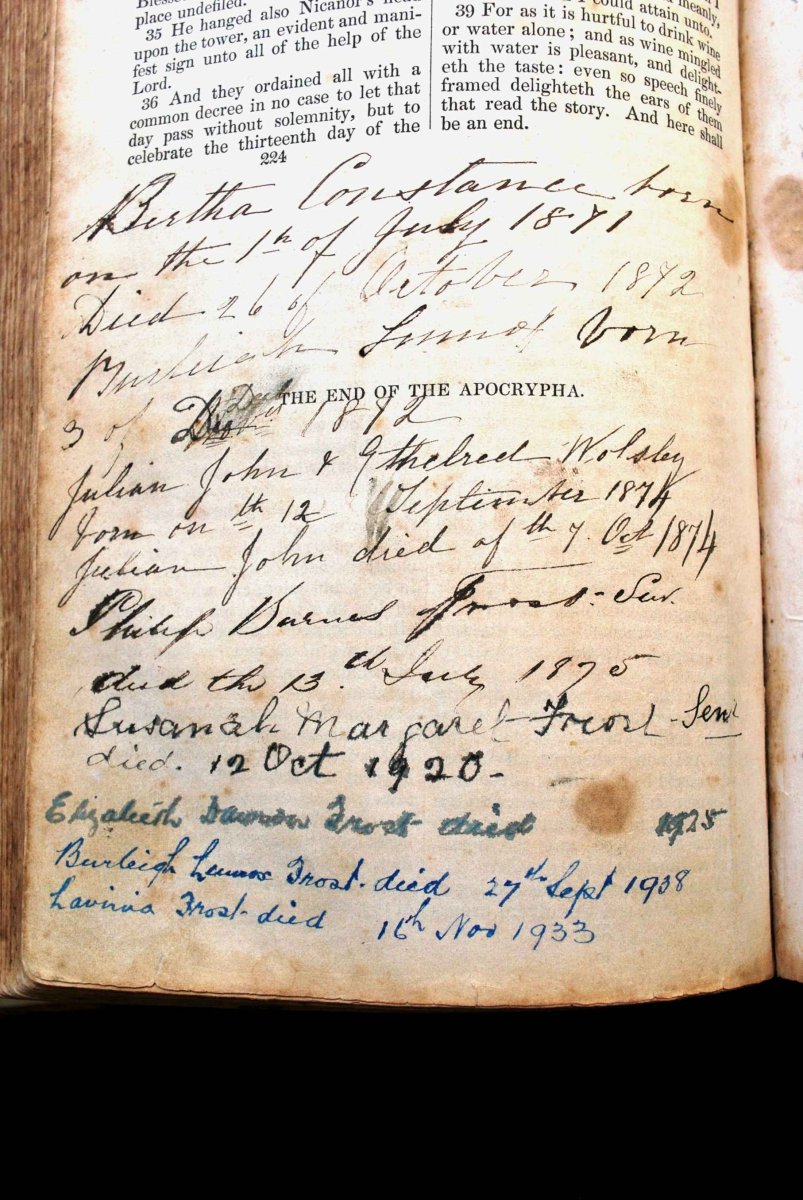 place undefiled.
35 He hanged also Nicanor's head
upon the tower, an evident and mani-
fest sign unto all of the help of the
Lord.
36 And they ordained all with a
common decree in no case to let that
day pass without solemnity, but to
celebrate the thirteenth day of the
meanly,
I could attain unto.
39 For as it is hurtful to drink wine
or water alone; and as wine mingled
with water is pleasant, and delight-
eth the taste: even so speech finely
framed delighteth the ears of them
that read the story. And here shall
be an end.
224
Bertha Constance born
on the 1th of July 1871
Died 26 of October 1872
Burleigh Lennox born
THE END OF THE APOCRYPHA.
3 of Dec 1872
Julian John & Ethelred Wolsley
born on th 12 September 1874
Julian John died of th 7. Oct 1874
Philip Barnes Frost - Sen.
died the 13.th July 1875
Susanah Margaret Frost - Senr
died. 12 Oct 1920-
Elizabeth Dawson Frost died 1925
Burleigh Lennox Frost - died 27th Sept 1938
Lavinia Frost - died 16th Nov 1933